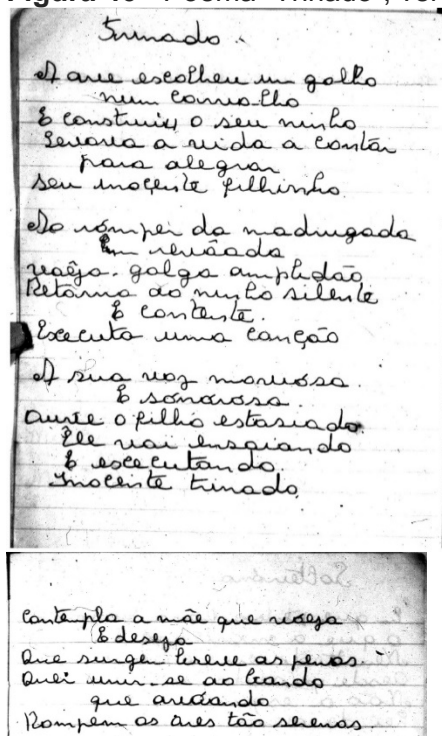 Figura 10 - Poema "Trinado",
Trinado.
A ave escolheu um galho
num carvalho
E construiu o seu ninho
Levava a vida a contar
para alegrar
seu inocente filhinho.
Ao romper da madrugada
Em revôada
voêja. galga amplidão
Retorna ao ninho silente
E contente.
Executa uma canção
A sua voz maviosa.
E sonorosa.
ouvie o filho estasiado.
Ele vai ensaiando
E escecutando.
Inocente trinado
Contempla a mãe que voeja
E deseja
Que surgen breve as penas.
Quei unir-se ao bando
que avoando
Rompem os ares tão serenos.